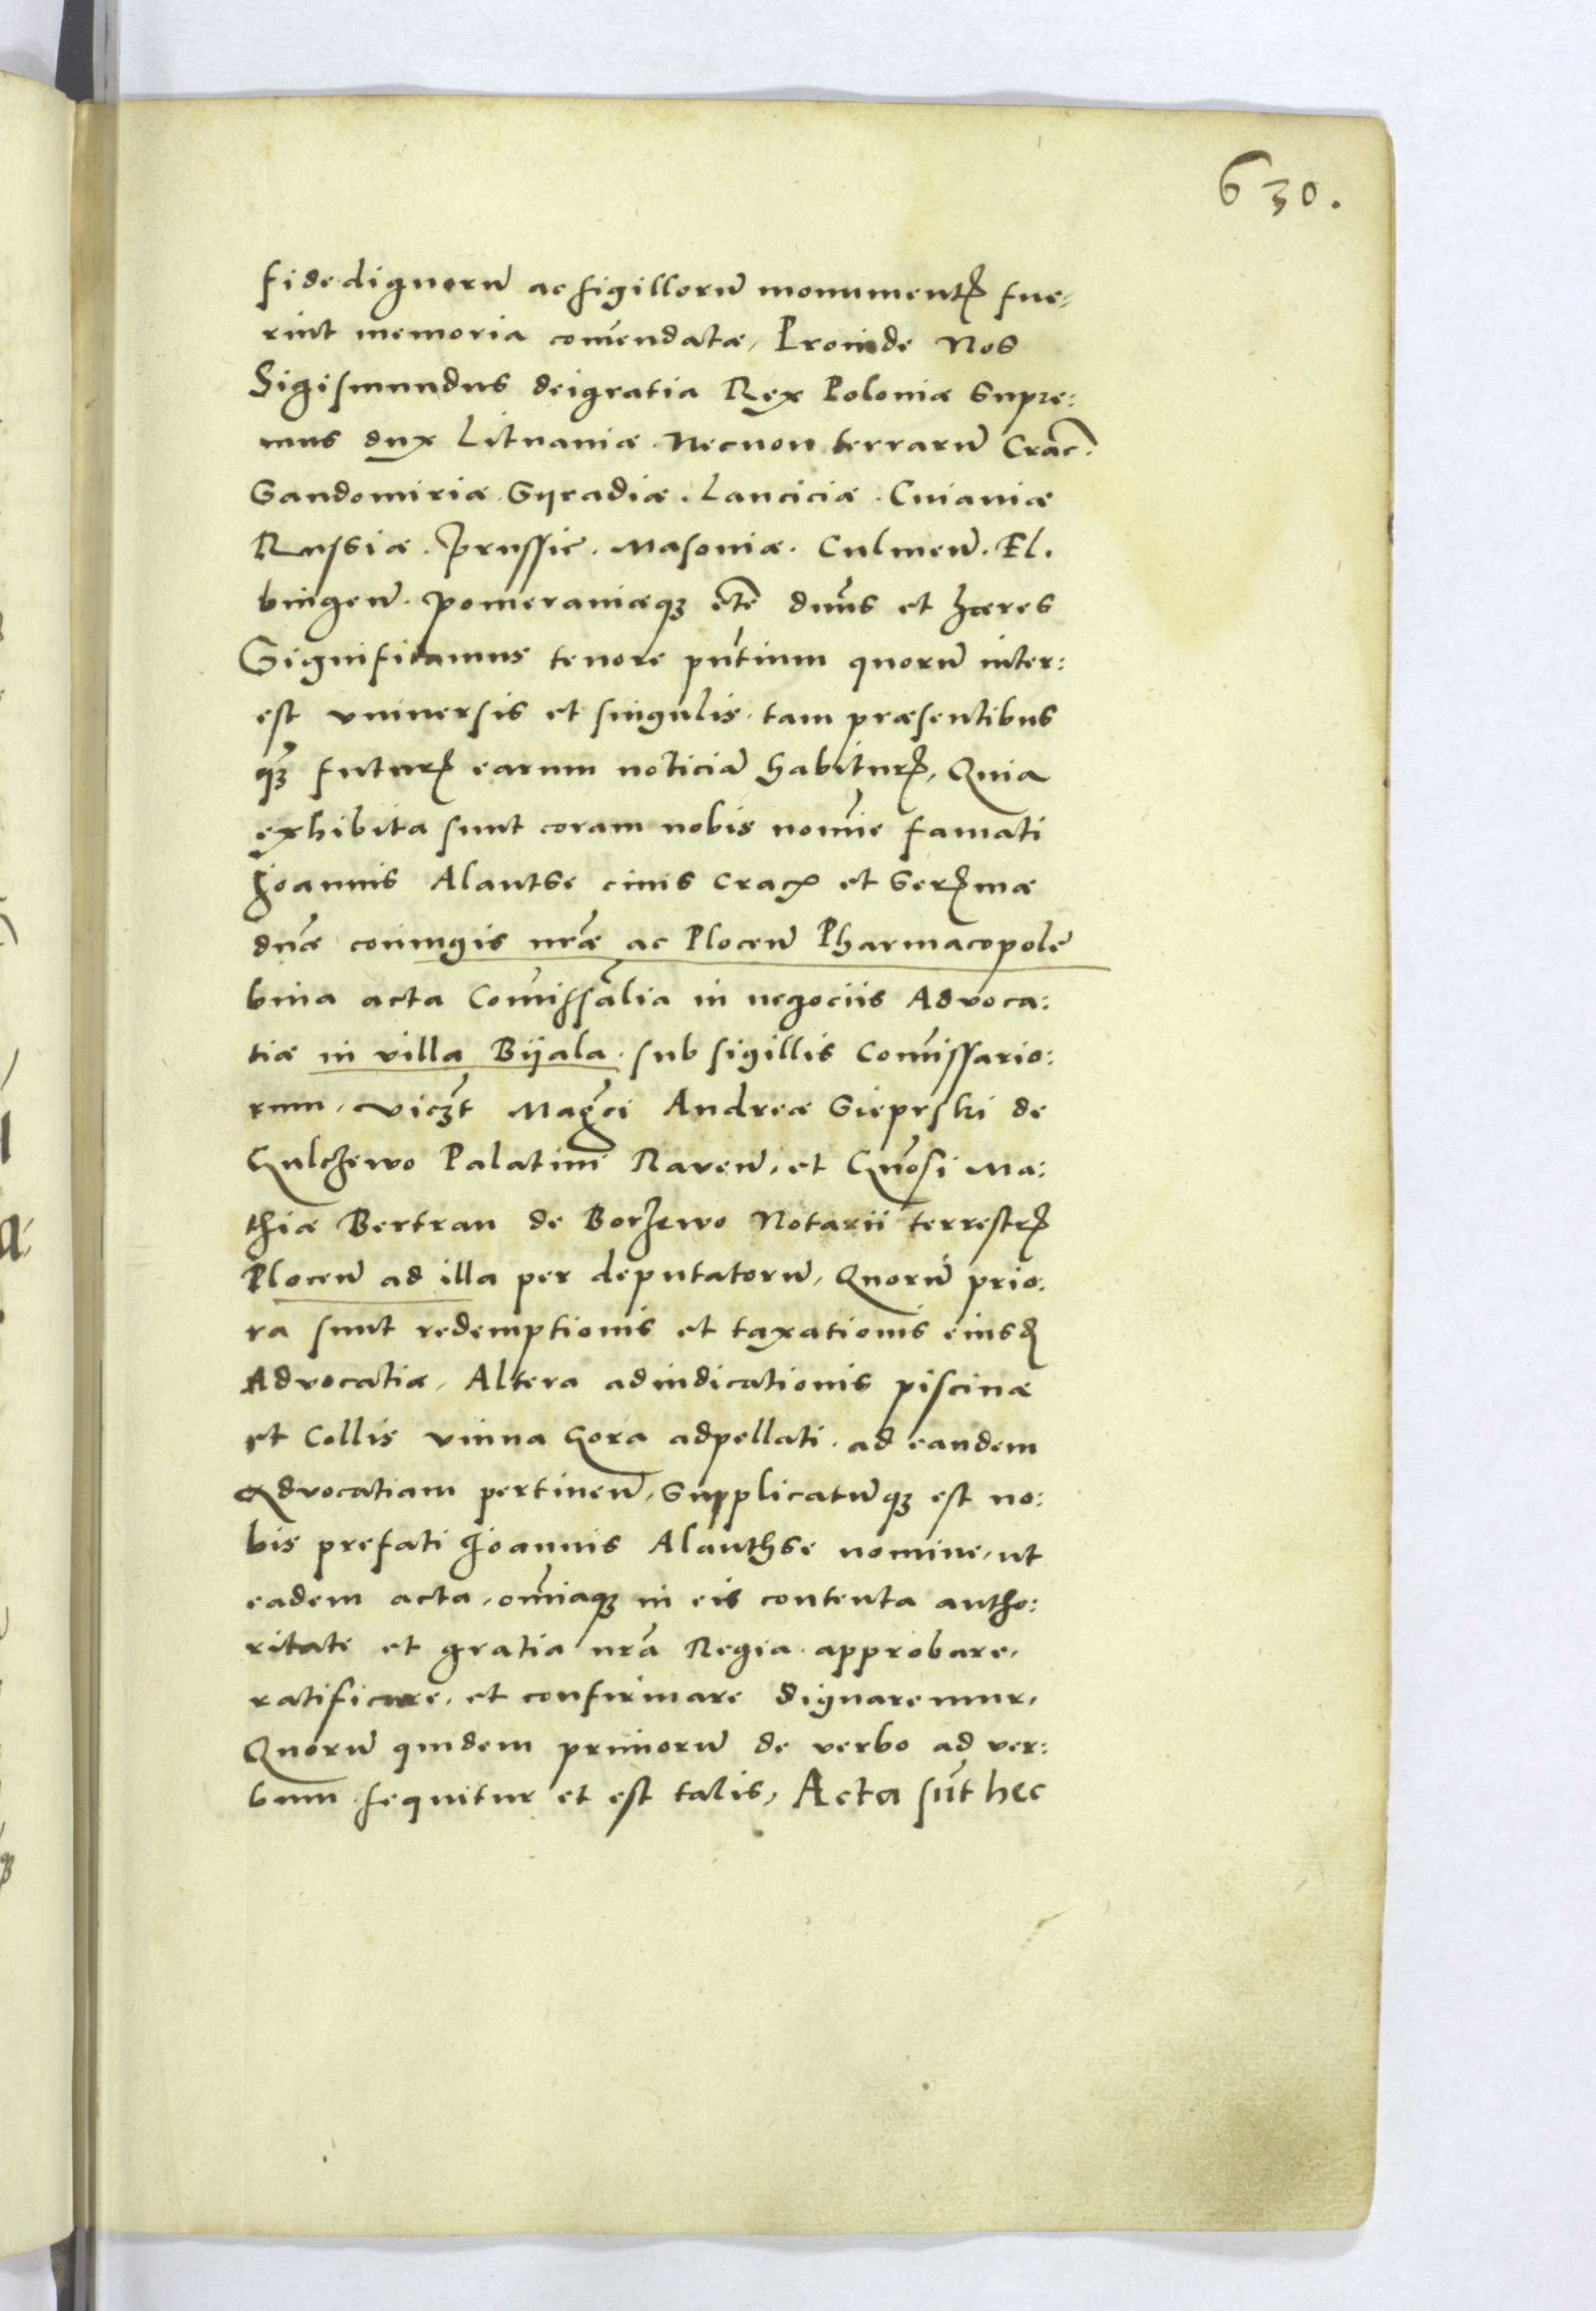 630.
fidedignorū ac sigillorū monumentꝭ fue-
rint memoria com̄endatæ, Proinde Nos
Sigismundus dei gratia Rex Poloniæ Supre:
mus dux Lituaniæ Necnon terrarū Crac̄.
Sandomiriæ. Syradiæ. Lanciciæ. Cuiaviæ
Russiæ. Prussię. Masoviæ. Culmen̄. El.
bingen̄. Pomeraniæqꝫ etc̄ dnūs et hæres
Significamus tenore pn̄tium quorū inter:
est vniversis et singulis. tam præsentibus
qꝫ̄ futurꝭ earum noticiā habiturꝭ, Quia
exhibita sunt coram nobis nomīe famati
Joannis Alantse civis Crac̄ et Serꝭmæ
dn̄æ coniugis nr̄æ ac Plocen̄ Pharmacopolę
bina acta Com̄issālia in negociis Advoca:
tiæ in villa Bijala. sub sigillis Com̄issario:
rum, vicꝫt Maḡci Andreæ Sieprski de
Gulczewo Palatini Raven̄, et Gn̄osi Ma:
thiæ Bertran de Borzewo Notarii terrestrꝭ
Plocen̄ ad illa per deputatorū, Quorū prio:
ra sunt redemptionis et taxationis eiusꝺ̄
Advocatiæ, Altera adiudicationis piscinæ
et Collis vinna Gora adpellati. ad eandem
Advocatiam pertinen̄, Supplicatūqꝫ est no:
bis prefati Joannis Alanthse nomine, ut
eadem acta, om̄iaqꝫ in eis contenta autho:
ritate et gratia nr̄a Regia approbare,
ratificare, et confirmare dignaremur,
Quorū quidem primorū de verbo ad ver:
bum sequitur et est talis, Acta sūt hec